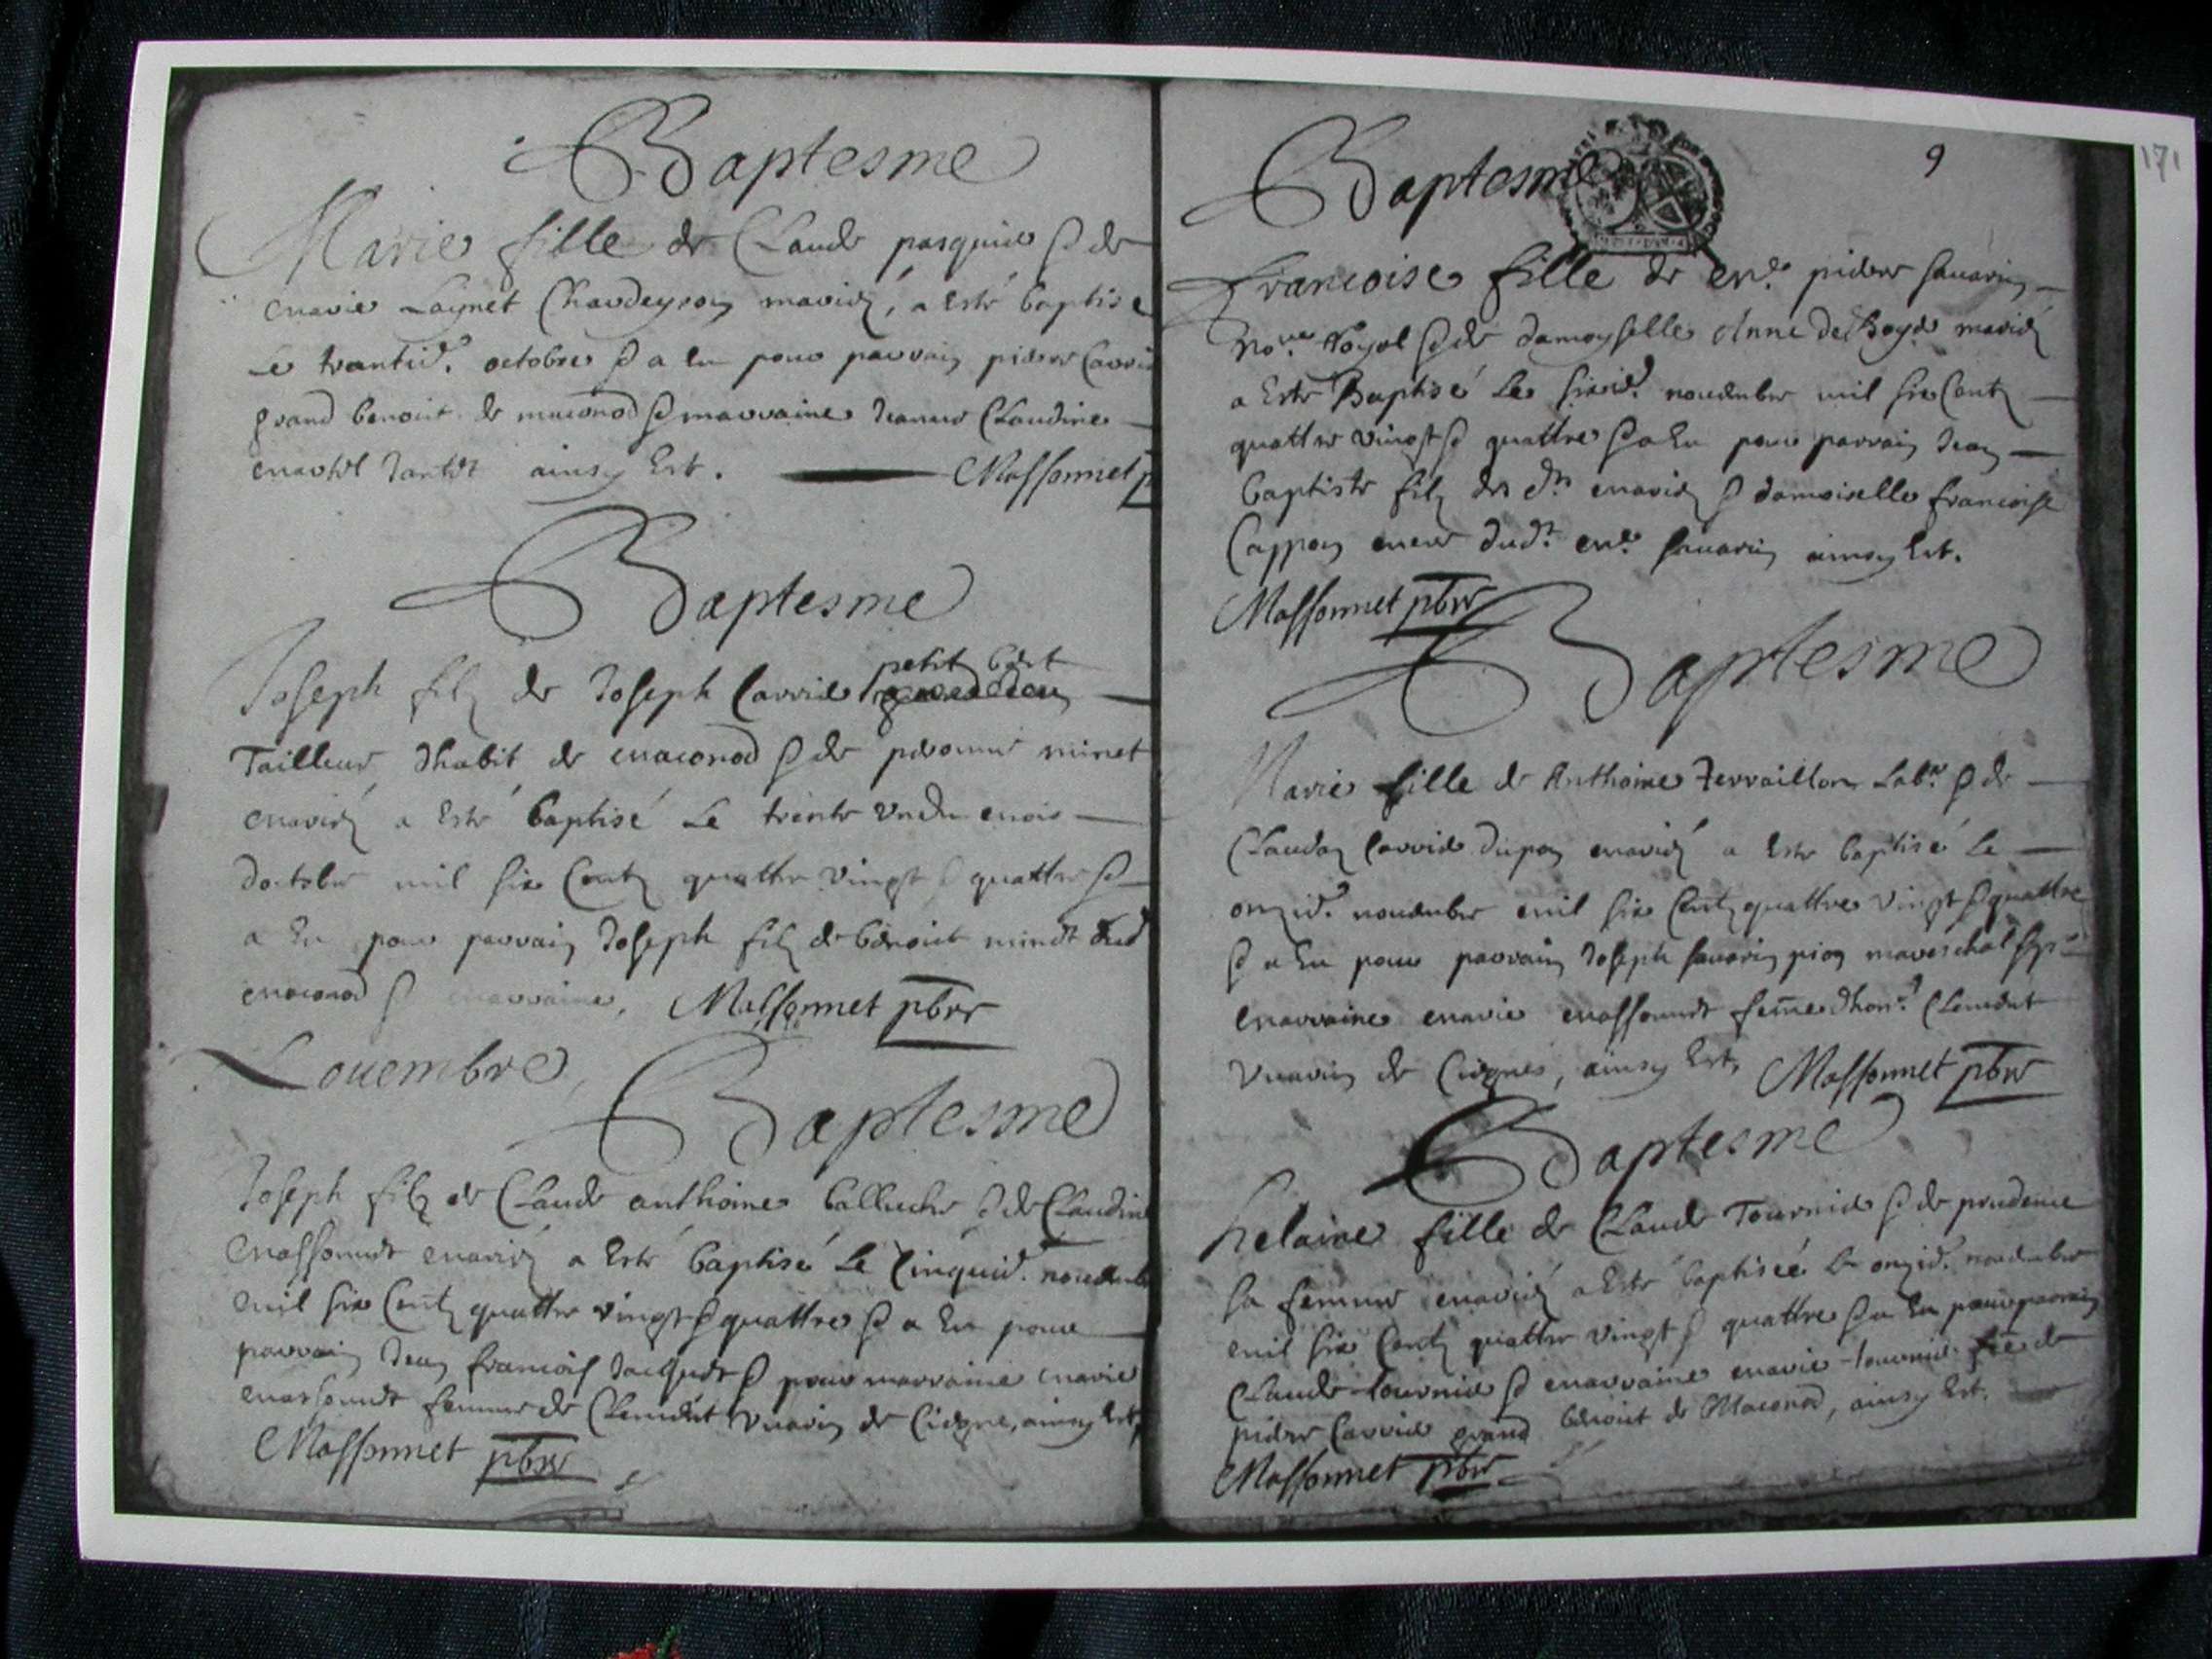 Baptesme
Marie fille de Claude pasquier & de
marie Laynet Chardeyron mariéz, a Esté baptisé
Le trantie. octobre & a Eu pour parrain pierre Carrier
grand benoist de maconod & marraine Jeanne Claudine
ainsy Est. Massonnet p
Baptesme
petit
Joseph filz de Joseph Carrier
Tailleur dhabit de maconod & de pernonne minet
mariéz a Esté baptisé Le trente un du mois
doctobre mil six Centz quattre vingt & quattre &
a Eu pour parrain Joseph filz de benoist minet dud
maconod & marraine, Massonnet pbre
Nouembre,
Baptesme
Joseph filz de Claude anthoine balluche & de Claudine
Massonnet mariéz a Esté baptisé Le Cinquie. nouembre
mil six Centz quattre vingt & quattre & a Eu pour
parrain Jean francois Jacquet & pour marraine marie
massonnet femme de Clement vuarin de Cirgne, ainsy Est,
Massonnet pbre
9
171
Baptesme
francoise fille de me. pierre sauarin
nore. Royal & de damoyselle Anne de mariéz
a Esté Baptisé Le sixie. nouembre mil six Centz
quattre vingt & quattre & a Eu pour parrain Jean
baptiste filz des dts mariéz & damoiselle francoise
Cappon mere dudt. me. sauarin ainsy Est.
Massonnet pbre
Baptesme
Marie fille de Anthoine Terraillon Labr. & de
Claudaz Carrier dupon mariéz a Esté baptisé Le
onzie. nouembre mil six Centz quattre vingt & quattre
& a Eu pour parrain Joseph sauarin pion mareschal &
marraine marie massonnet femme dhon. Clement
vuarin de Cirgnes, ainsy Est, Massonnet pbre
Baptesme
helaine fille de Claude Tournier & de prudence
sa femme mariéz a Esté baptisée Le onzie. nouembre
mil six Centz quattre vingt & quattre & a Eu pour parrain
Claude tournier & marraine marie tournier fee de
pierre Carrier grand benoist de Maconod, ainsy Est.
Massonnet pbre